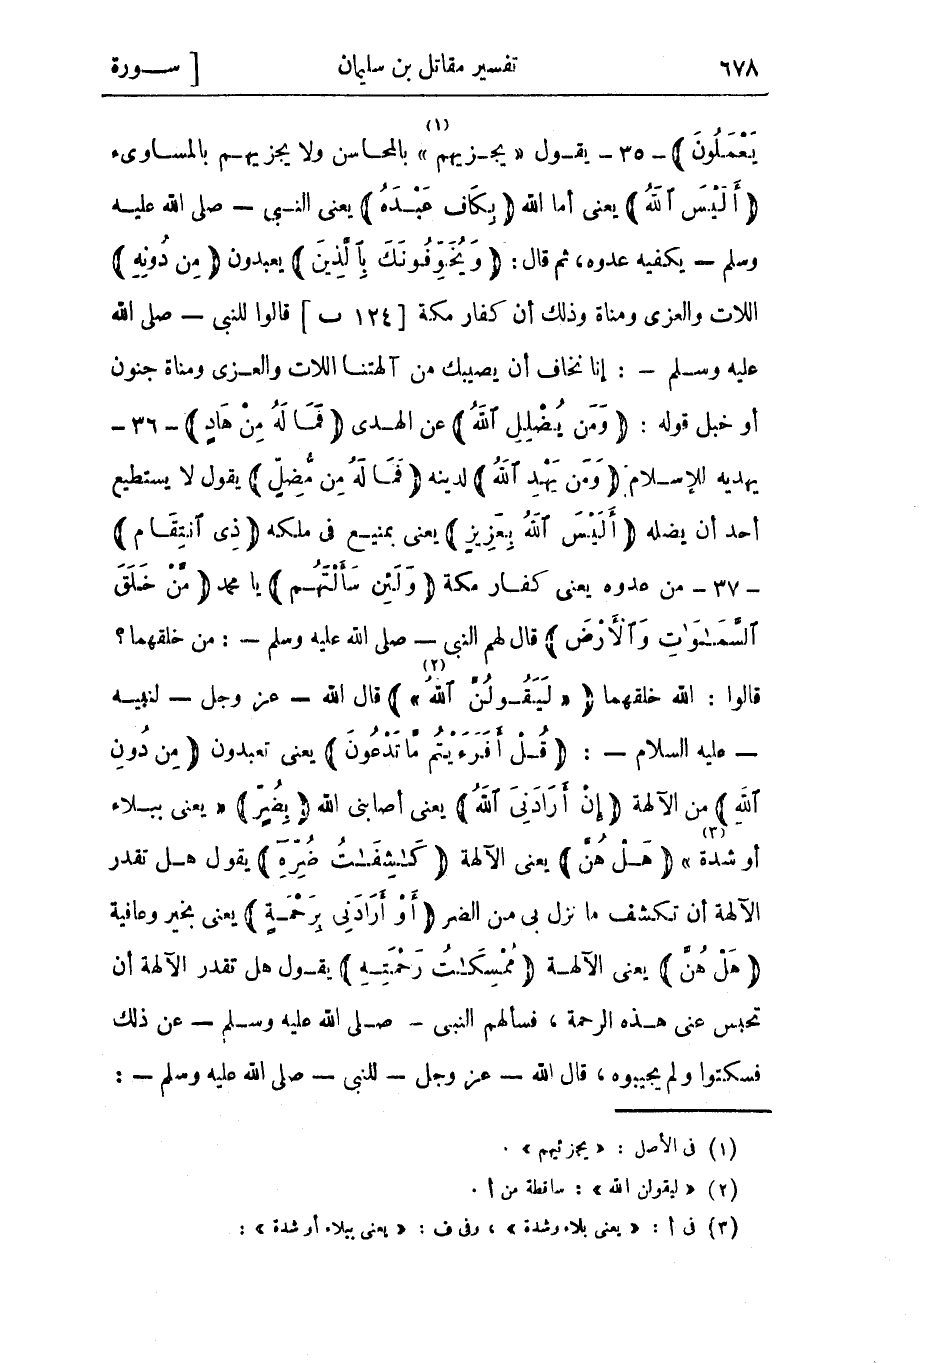 ٦٧٨ تفسير مقاتل بن سليمان [ سورة
يَعْمَلُونَ ) - ٣٥ - يقول « يجزيهم (١) » بالمحاسن ولا يجزيهم بالمساوىء
( أَلَيْسَ ٱللَّهُ ) يعنى أما الله ( بِكَافٍ عَبْدَهُ ) يعنى النبي — صلى الله عليه
وسلم — يكفيه عدوه، ثم قال : ( وَيُخَوِّفُونَكَ بِٱلَّذِينَ ) يعبدون ( مِن دُونِهِ )
اللات والعزى ومناة وذلك أن كفار مكة [ ١٢٤ ب ] قالوا للنبى — صلى الله
عليه وسلم — : إنا نخاف أن يصيبك من آلهتنا اللات والعزى ومناة جنون
أو خبل قوله : ( وَمَن يُضْلِلِ ٱللَّهُ ) عن الهدى ( فَمَا لَهُ مِنْ هَادٍ ) - ٣٦ -
يهديه للإسلام ( وَمَن يَهْدِ ٱللَّهُ ) لدينه ( فَمَا لَهُ مِن مُّضِلٍّ ) يقول لا يستطيع
أحد أن يضله ( أَلَيْسَ ٱللَّهُ بِعَزِيزٍ ) يعنى بمنيع فى ملكه ( ذِى ٱنتِقَامٍ )
- ٣٧ - من عدوه يعنى كفار مكة ( وَلَئِن سَأَلْتَهُم ) يا محمد ( مَّنْ خَلَقَ
ٱلسَّمَـٰوَٰتِ وَٱلْأَرْضَ ) قال لهم النبى — صلى الله عليه وسلم — : من خلقهما ؟
قالوا : الله خلقهما ( « لَيَقُولُنَّ ٱللَّهُ (٢) » ) قال الله — عز وجل — لنبيه
— عليه السلام — : ( قُلْ أَفَرَءَيْتُم مَّا تَدْعُونَ ) يعنى تعبدون ( مِن دُونِ
ٱللَّهِ ) من الآلهة ( إِنْ أَرَادَنِىَ ٱللَّهُ ) يعنى أصابنى الله ( بِضُرٍّ ) « يعنى ببلاء
أو شدة (٣) » ( هَلْ هُنَّ ) يعنى الآلهة ( كَـٰشِفَـٰتُ ضُرِّهِ ) يقول هل تقدر
الآلهة أن تكشف ما نزل بى من الضر ( أَوْ أَرَادَنِى بِرَحْمَةٍ ) يعنى بخير وعافية
( هَلْ هُنَّ ) يعنى الآلهة ( مُمْسِكَـٰتُ رَحْمَتِهِ ) يقول هل تقدر الآلهة أن
تحبس عنى هذه الرحمة ، فسألهم النبى — صلى الله عليه وسلم — عن ذلك
فسكتوا ولم يجيبوه ، قال الله — عز وجل — للنبى — صلى الله عليه وسلم — :
(١) فى الأصل : « يجزئيهم » .
(٢) « ليقولن الله » : ساقطة من أ .
(٣) فى أ : « يعنى بلاء وشدة » ، وفى ف : « يعنى ببلاء أو شدة » :